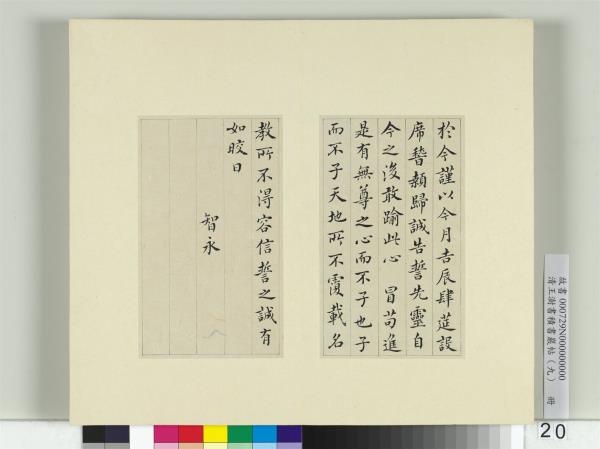 於今謹以今月吉辰肆莚設
席稽顙歸誠告誓先靈自
今之後敢踰此心 冒茍進
是有無尊之心而不子也子
而不子天地所不覆載名
教所不得容信誓之誠有
如皎日
智永
故書 000729N000000000
清王澍書積書巖帖(九) 冊
20